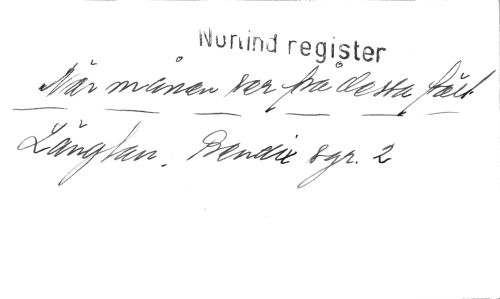 Nurlind register
När månen ser på dessa fält
Längtan. Bendix sgr. 2